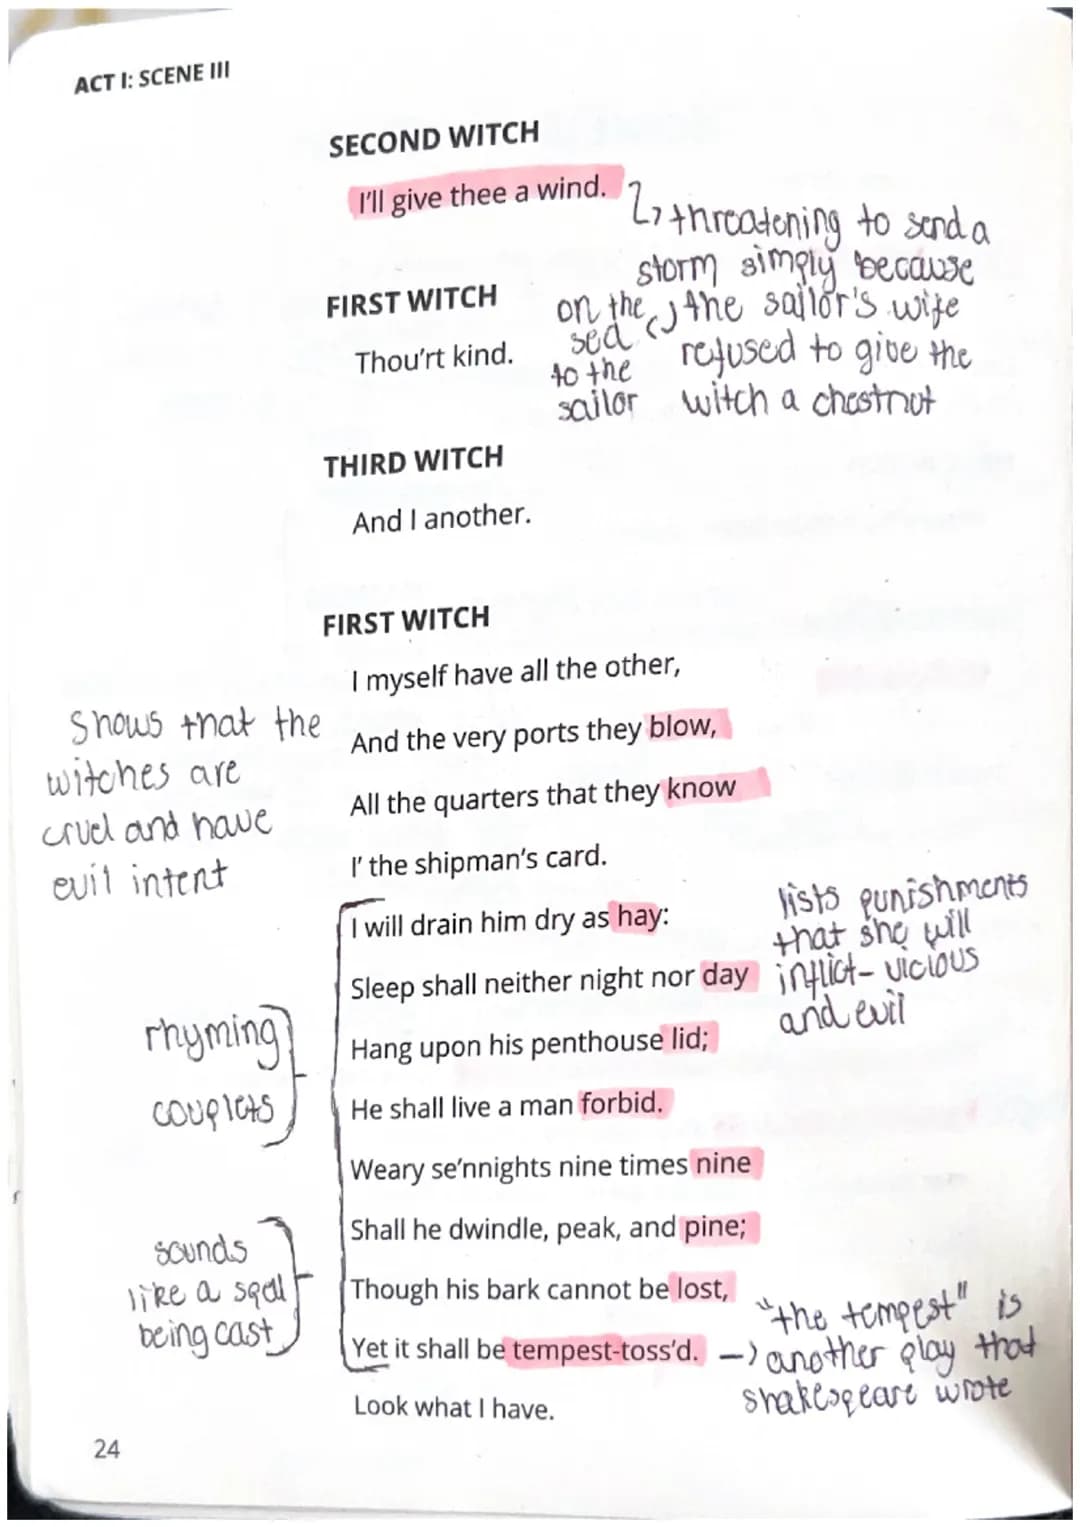 ACT I: SCENE III
SECOND WITCH
I'll give thee a wind.
threatening to send a
storm simply because
the sailor's wife
refused to give the
witch a chestnut
on the
sea
to the
sailor
FIRST WITCH
Thou'rt kind.
THIRD WITCH
And I another.
FIRST WITCH
I myself have all the other,
And the very ports they blow,
All the quarters that they know
I' the shipman's card.
Shows that the
witches are
cruel and have
evil intent
I will drain him dry as hay:
Sleep shall neither night nor day
Hang upon his penthouse lid;
He shall live a man forbid.
Weary se'nnights nine times nine
Shall he dwindle, peak, and pine;
Though his bark cannot be lost,
Yet it shall be tempest-toss'd.
Look what I have.
lists punishments
that she will
inflict - vicious
and evil
rhyming
couplets
sounds
like a spell
being cast
"the tempest" is
another play that
shakespeare wrote
24